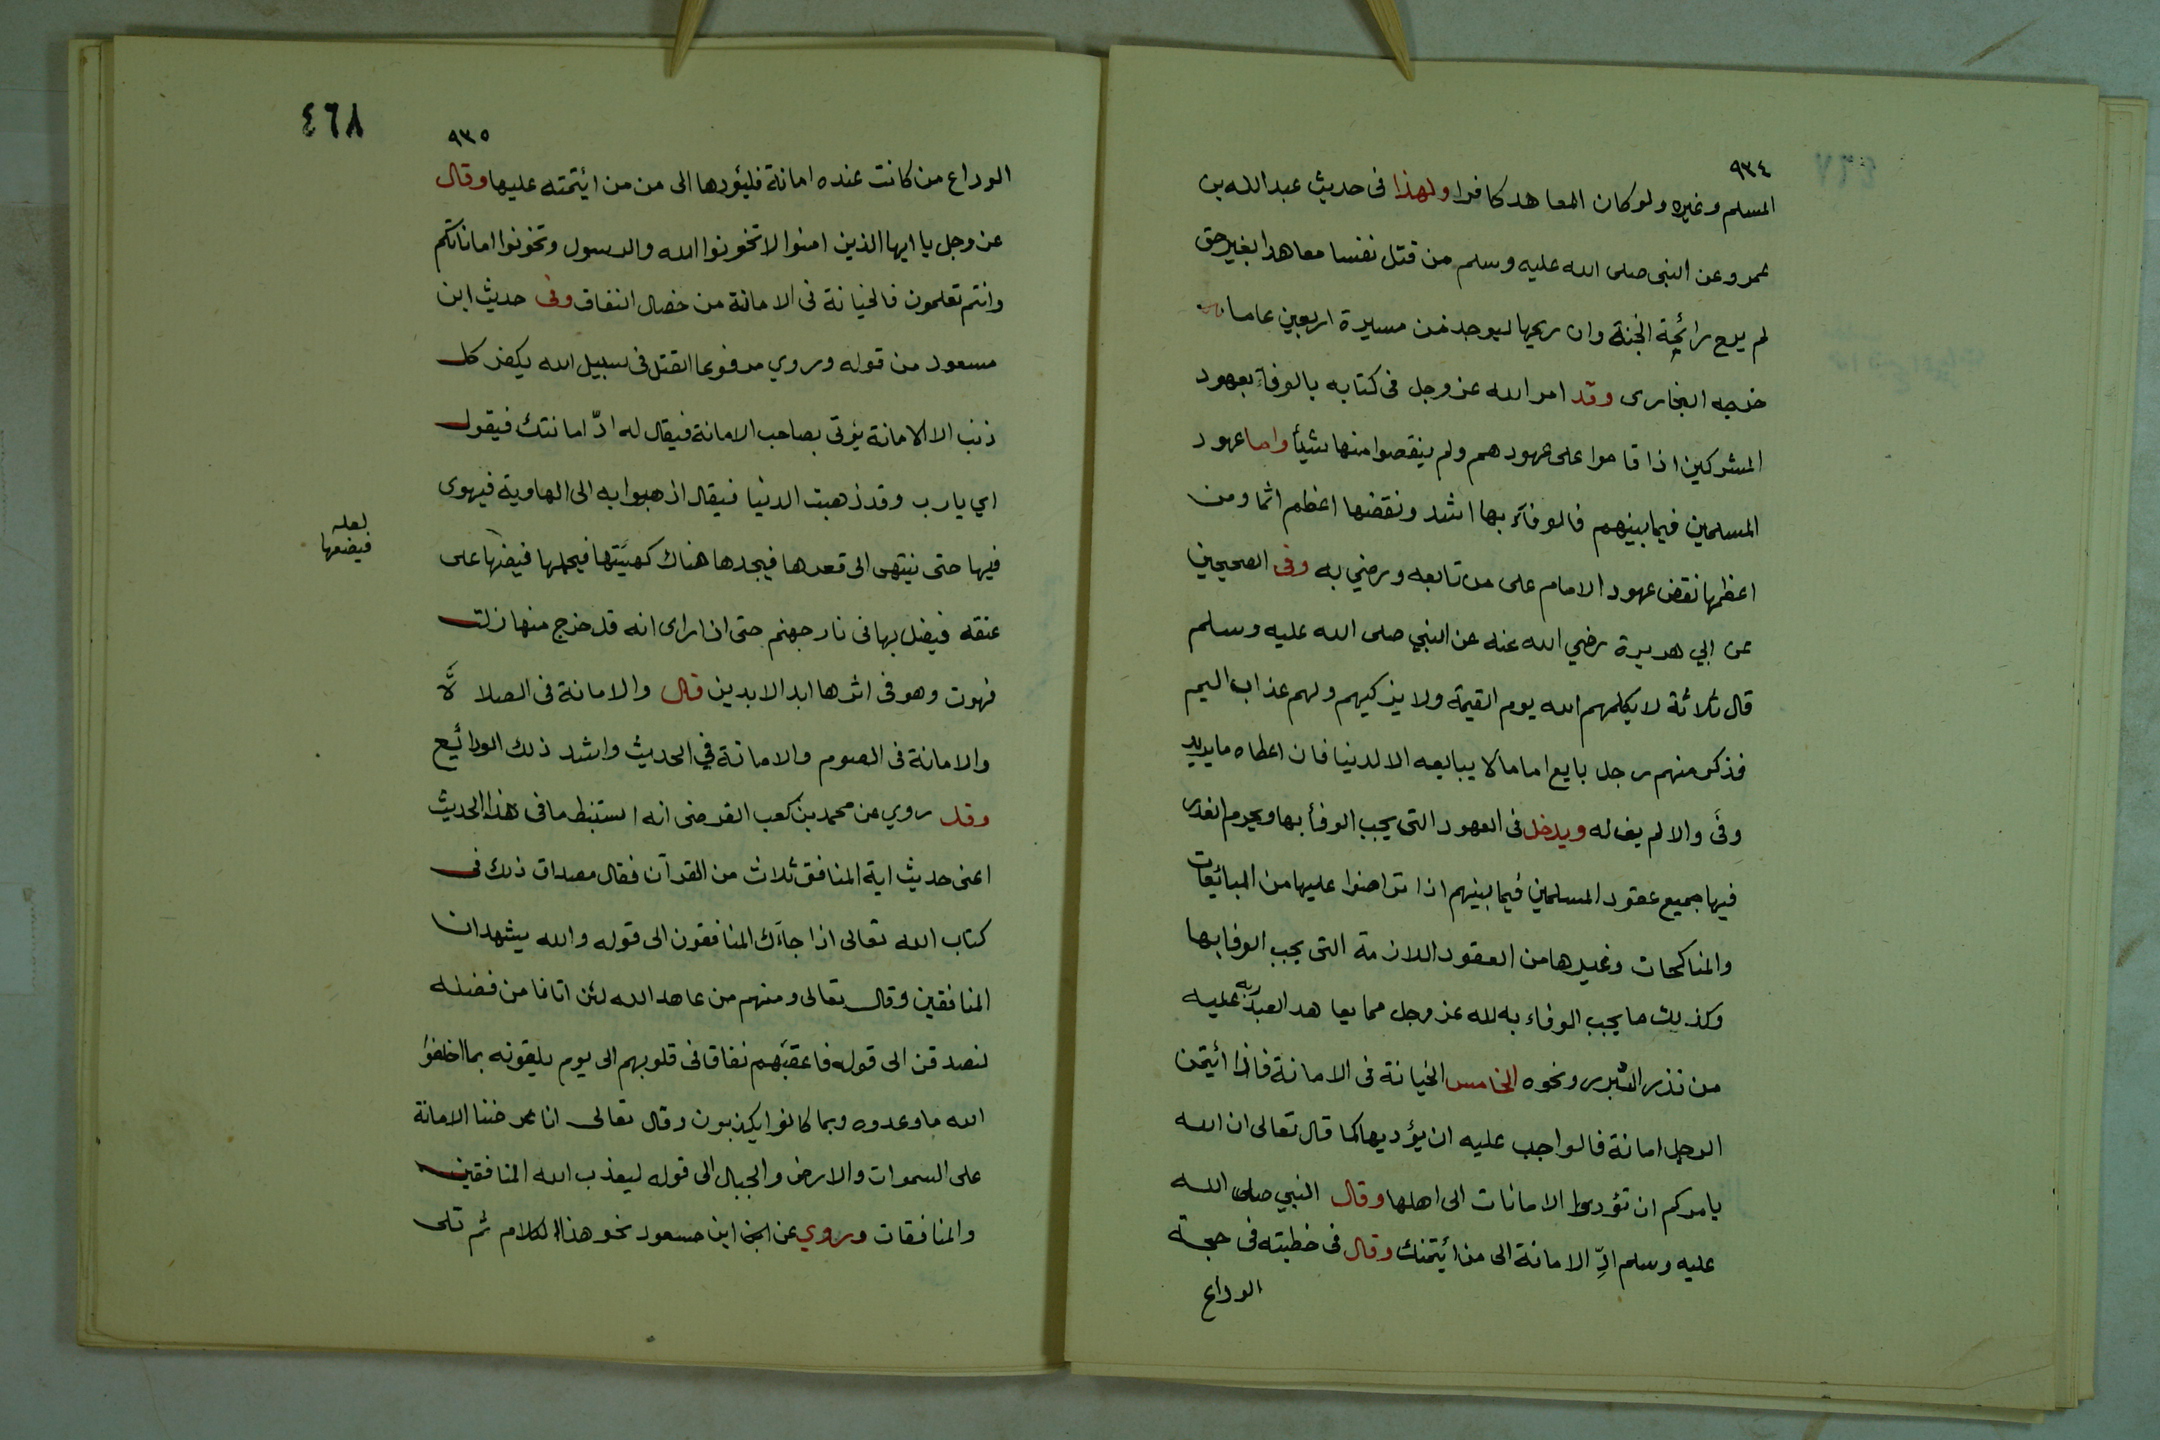 ٩٣٤
المسلم وغيره ولو كان المعاهد كافرا ولهذا فى حديث عبد الله بن
عمرو عن النبى صلى الله عليه وسلم من قتل نفسا معاهدا بغير حق
لم يرح رائحة الجنة وان ريحها ليوجد من مسيرة اربعين عاما
خرجه البخارى وقد امر الله عز وجل فى كتابه بالوفآء بعهود
المشركين اذا قاموا على عهودهم ولم ينقصوا منها شيئا واما عهود
المسلمين فيما بينهم فالوفآء بها اشد ونقضها اعظم اثما ومن
اعظمها نقض عهود الامام على من تابعه ورضي به وفى الصحيحين
عن ابي هريرة رضي الله عنه عن النبي صلى الله عليه وسلم
قال ثلاثة لا يكلمهم الله يوم القيمة ولا يزكيهم ولهم عذاب اليم
فذكر منهم رجل بايع اماما لا يبايعه الا لدنيا فان اعطاه ما يريد
وفى والا لم يف له ويدخل فى العهود التى يجب الوفأ بها ويحرم الغدر
فيها جميع عقود المسلمين فيما بينهم اذا تراضوا عليها من المبائعات
والمناكحات وغيرها من العقود اللازمة التى يجب الوفا بها
وكذلك ما يجب الوفاء به لله عز وجل مما يعاهد العبد ربه عليه
من نذر التبرر ونحوه الخامس الخيانة فى الامانة فاذا ائيتمن
الرجل امانة فالواجب عليه ان يؤديها كما قال تعالى ان الله
يامركم ان تؤدوا الامانات الى اهلها وقال النبي صلى الله
عليه وسلم ادِّ الامانة الى من ائيتمنك وقال فى خطبته فى حجة
الوداع
٤٦٨
٩٣٥
الوداع من كانت عنده امانة فليؤدها الى من من ائيتمته عليها وقال
عز وجل يا ايها الذين امنوا لا تخونوا الله والرسول وتخونوا اماناتكم
وانتم تعلمون فالخيانة فى الامانة من خصال النفاق وفى حديث ابن
مسعود من قوله وروي مرفوعا القتل فى سبيل الله يكفر كل
ذنب الا الامانة يؤتى بصاحب الامانة فيقال له ادّ امانتك فيقول
اي يارب وقد ذهبت الدنيا فيقال اذهبوا به الى الهاوية فيهوى
فيها حتى ينتهى الى قعرها فيجدها هناك كهيئتها فيحملها فيضعها على
لعله
فيضعها
عنقه فيضل بها فى نار جهنم حتى اذا راى انه قد خرج منها زلت
فهوت وهو فى اثرها ابد الابدين قال والامانة فى الصلاة
والامانة فى الصوم والامانة في الحديث واشد ذلك الودائيع
وقد روي عن محمد بن كعب القرضى انه استنبط ما فى هذا الحديث
اعنى حديث اية المنافق ثلاث من القرآن فقال مصداق ذلك فى
كتاب الله تعالى اذا جآءك المنافقون الى قوله والله يشهد ان
المنافقين وقال تعالى ومنهم من عاهد الله لئن اتانا من فضله
لنصدقن الى قوله فاعقبهم نفاقا فى قلوبهم الى يوم يلقونه بما اخلفوا
الله ما وعدوه وبما كانوا يكذبون وقال تعالى انا عرضنا الامانة
على السموات والارض والجبال الى قوله ليعذب الله المنافقين
والمنافقات وروي عن ابن مسعود نحو هذا الكلام ثم تلى